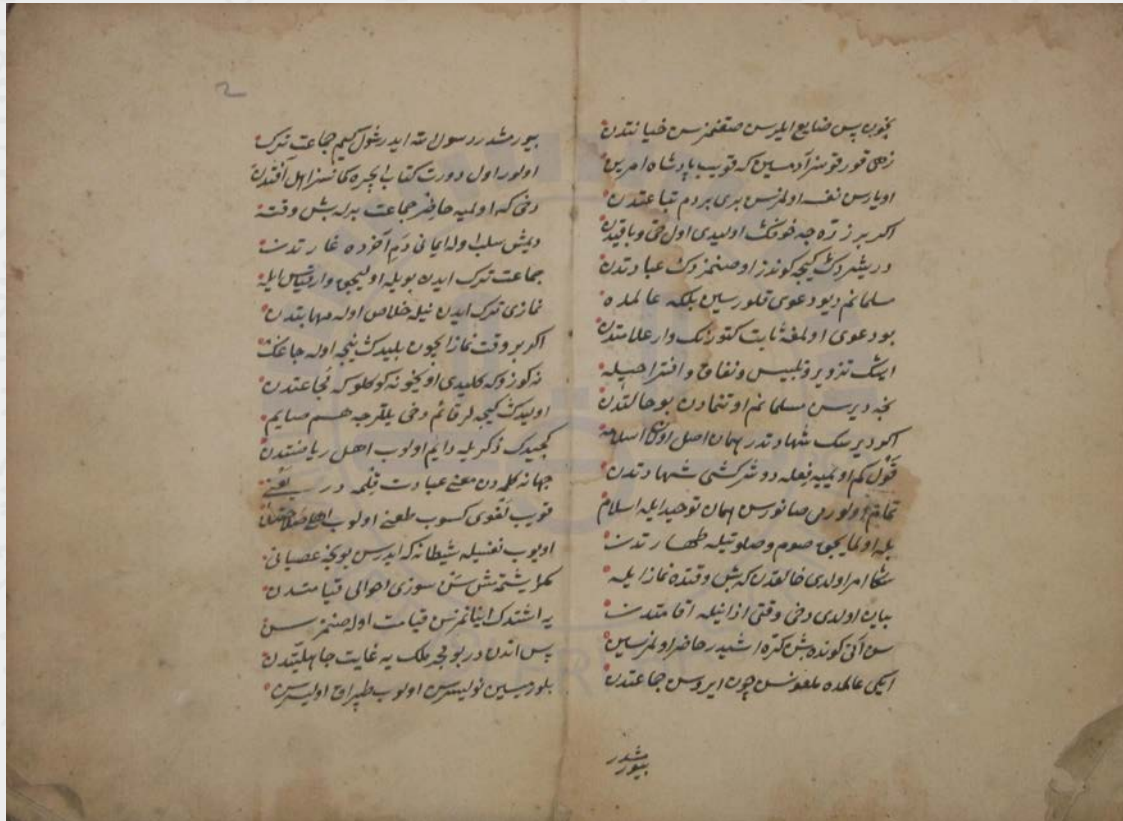 نجون پس ضایع ایلرسن صقنمزسن خیانتدن
زهی قورقوسز آدمسین که قویب پادشاه امرین
اویارسن نفسه اولمزسن بری بردم تباعتدن
اکر بر ذره جه خوفک اولیدی اول حی و باقیدن
دریشردک کیجه کوندز اوصنمزدک عباد تدن
مسلمانم دیو دعوی قلورسین بلکه عالمده
بو دعوی اولمغه ثابت کتورنک وار علامتدن
ایشک تزویر و تلبیس و نفاق و افترا حیله
نجه دیرسن مسلمانم اوتنمادن بو حالتدن
اکر دیرسک شهادتدر همان اصل اسلامه
قول کم اولمیه فعله دوشر کشی شهادتدن
تمام اولورمی صانورسن همان توحید ایله اسلام
بله اولمایجق صوم و صلوتیله طهارتدن
سکا امر اولدی خالقدن که بش وقتده نماز ایله
بیان اولدی دخی وقتی اذانیله اقامتدن
سن آنی کونده بش کره اشیدر حاضر اولمزسین
ایکی عالمده ملعونسن چون ایروسن جماعتدن
بیورمشدر
٢
بیورمشدر رسول الله ایدر شول کیم جماعت ترک
اولور اول دورت کتاب ایچره کمانسز اهل آفتدن
دخی که اولمیه حاضر جماعت بدله بش وقته
دیمش سلب اوله ایمانی دم آخرده غارتدن
جماعت ترک ایدن بویله اولیجق وار قیاس ایله
نمازی ترک ایدن نیله خلاص اوله مهابتدن
اکر بر وقت نماز ایچون بلیدک نیجه اوله جاغک
نه کوزوکه کلیدی اویخو نه کوکلوکه نجاعتدن
اولیدک کیجه لر قائم دخی یلقرجه هم صایم
کجیدک ذکریله دایم اولوب اهل ریاضتدن
جهانه کلمه دن معنی عبادت قلمه در یعنی
قویب تقوی کسوب طعنی اولوب اهل
اویوب نفسیله شیطانه که ایدرسن بونجه عصیانی
مکر ایشتمش سن سوزی احوالی قیامتدن
یه اشتدک اینانمزسن قیامت اوله صنمزسن
پس اندن در بونجه ملک یه غایت جاهلیتدن
بلورمیسین نولیسرسن اولوب طپراق اولیسرسن